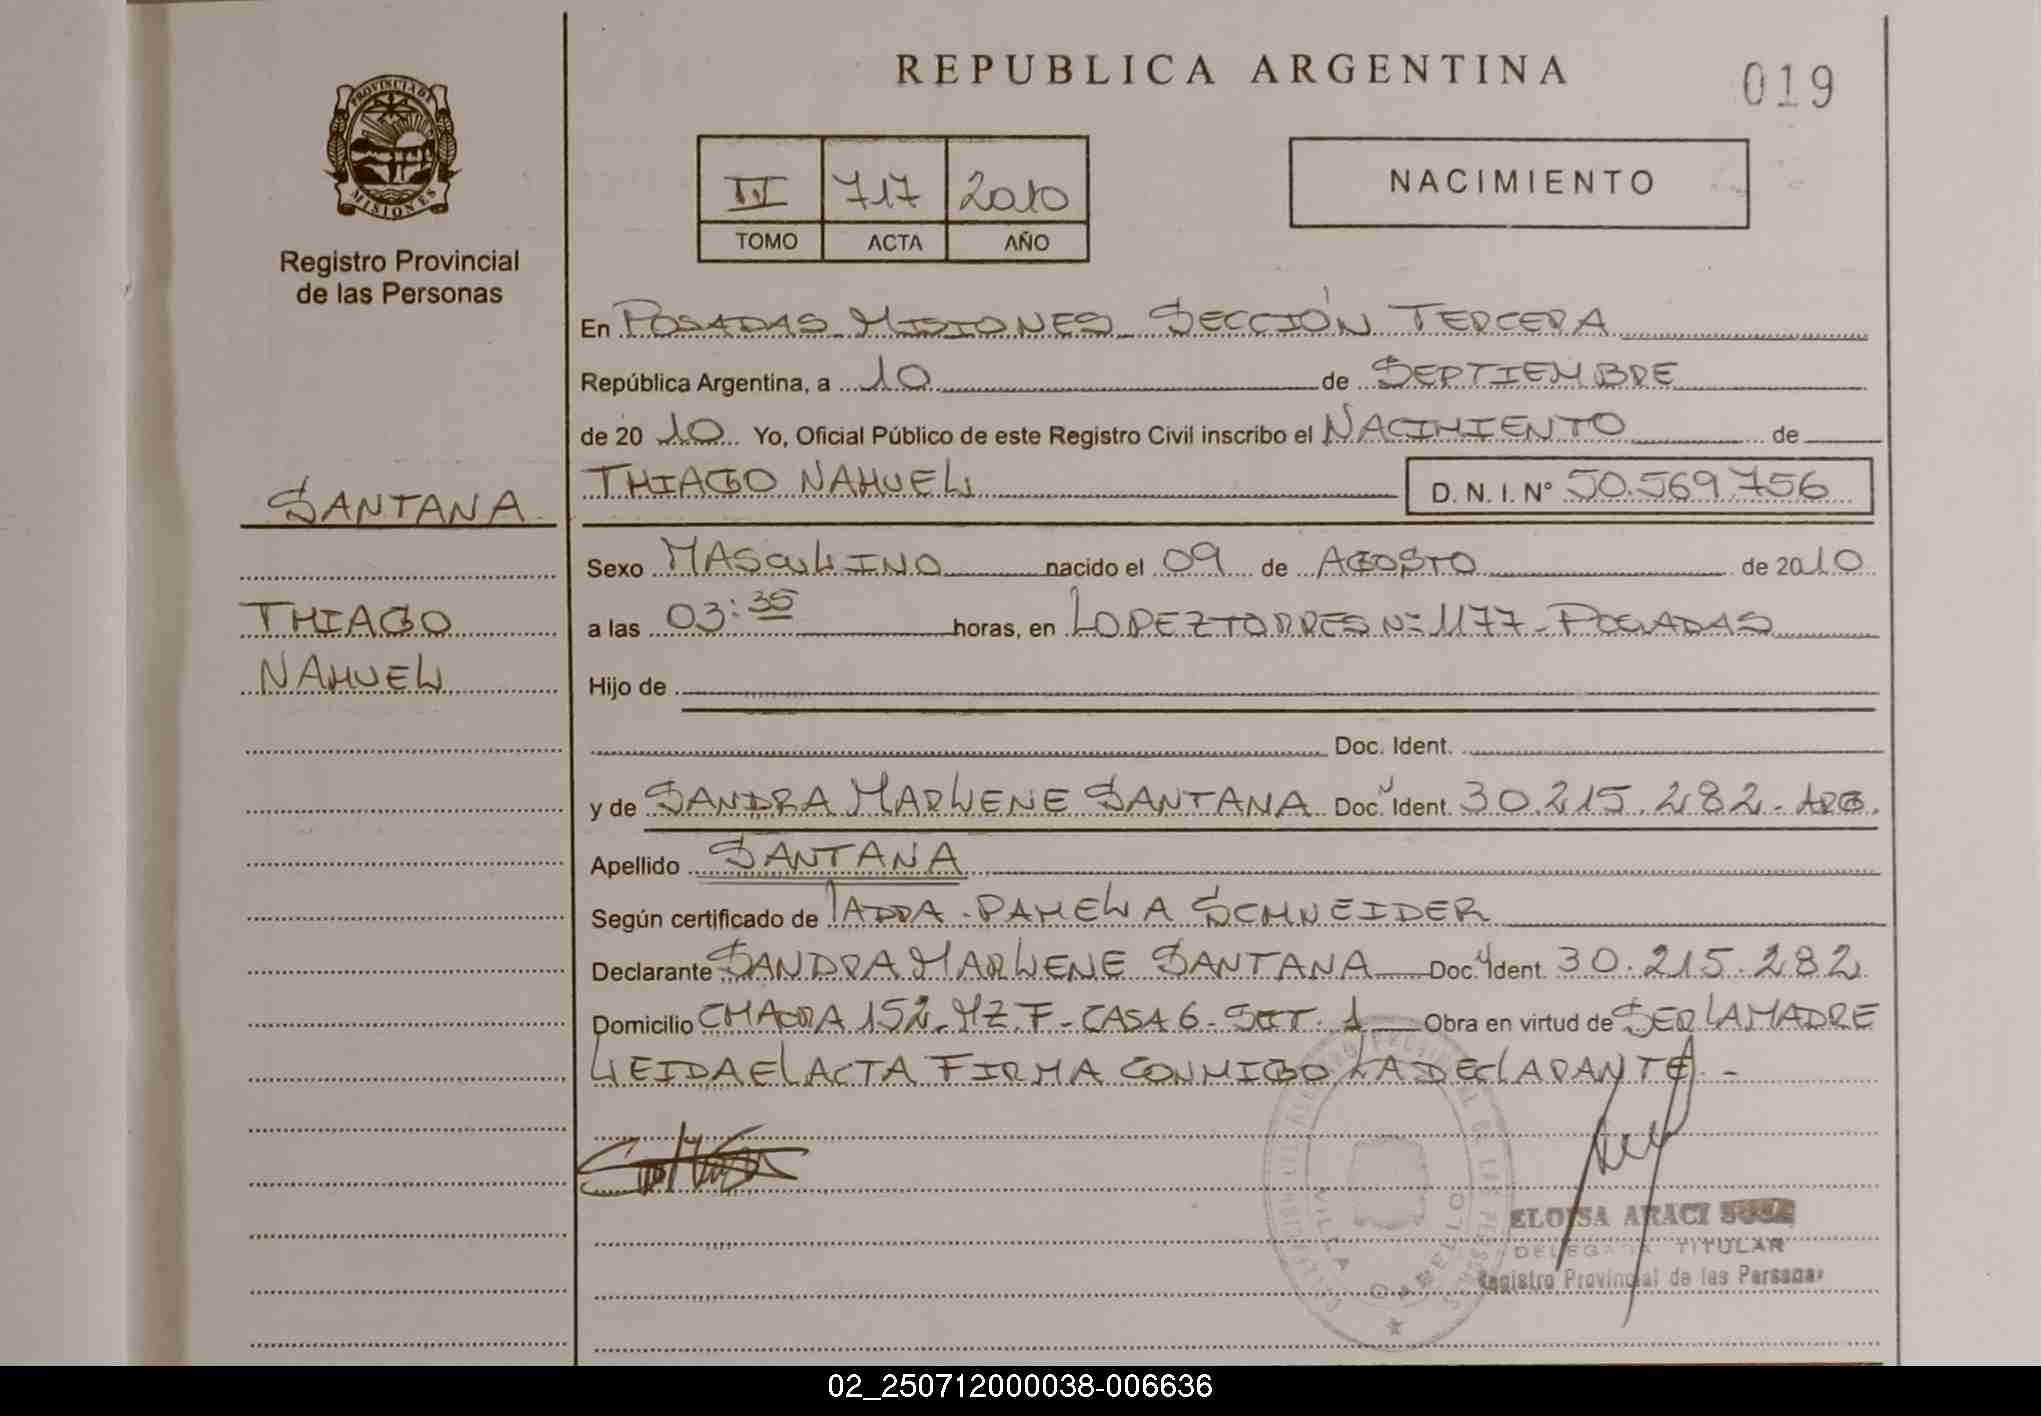 REPUBLICA ARGENTINA
019
PROVINCIA DE
MISIONES
Registro Provincial
de las Personas
717 2010
TOMO ACTA AÑO
NACIMIENTO
En POSADAS MISIONES SECCIÓN TERCERA
República Argentina, a 10 de SEPTIEMBRE
de 20 10 Yo, Oficial Público de este Registro Civil inscribo el NACIMIENTO de
THIAGO NAHUEL D. N. I. Nº 50.569.756
SANTANA
THIAGO
NAHUEL
Sexo MASCULINO nacido el 09 de AGOSTO de 2010
a las 03:35 horas, en LOPEZ TORRES Nº 1177 - POSADAS
Hijo de
Doc. Ident.
y de SANDRA MARLENE SANTANA Doc. Ident. 30.215.282 - ARG.
Apellido SANTANA
Según certificado de PAMELA SCHNEIDER
Declarante SANDRA MARLENE SANTANA Doc. Ident. 30.215.282
Domicilio CHACRA 152 - MZ. F - CASA 6 - 1 Obra en virtud de SER LA MADRE
LEIDA EL ACTA FIRMA CONMIGO LA DECLARANTE. -
VILLA CABELLO
ELOISA ARACI
DELEGADA TITULAR
Registro Provincial de las Personas
02_250712000038-006636